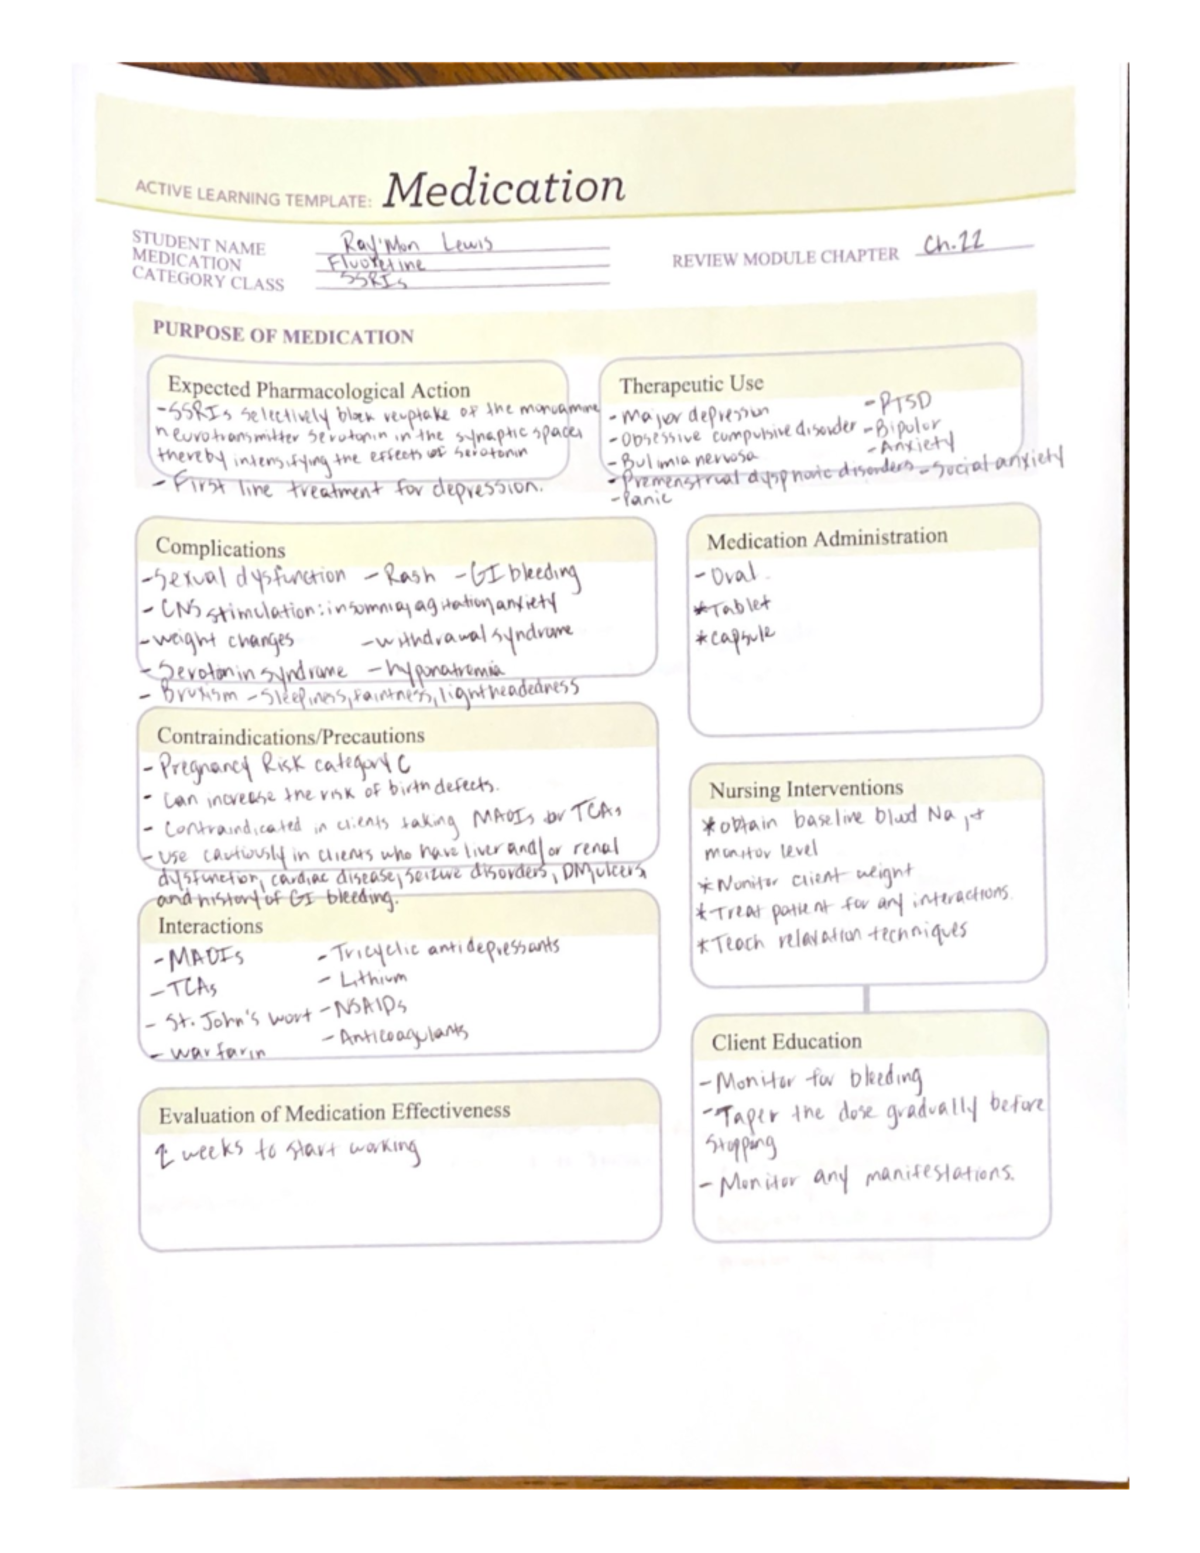 ACTIVE LEARNING TEMPLATE: Medication
STUDENT NAME Ray'Mon Lewis
MEDICATION Fluoxetine
CATEGORY CLASS SSRIs
REVIEW MODULE CHAPTER Ch.22
PURPOSE OF MEDICATION
Expected Pharmacological Action
-SSRIs selectively block reuptake of the monoamine
neurotransmitter serotonin in the synaptic spaces
thereby intensifying the effects of serotonin
- First line treatment for depression.
Therapeutic Use
- Major depression - PTSD
- Obsessive compulsive disorder - Bipolar
- Bulimia nervosa - Anxiety
- Premenstrual dysphoric disorders - Social anxiety
- Panic
Complications
- Sexual dysfunction - Rash - GI bleeding
- CNS stimulation: insomnia, agitation, anxiety
- weight changes - withdrawal syndrome
- Serotonin syndrome - hyponatremia
- Bruxism - Sleepiness, faintness, lightheadedness
Medication Administration
- Oral.
*Tablet
*capsule
Contraindications/Precautions
- Pregnancy Risk category C
- can increase the risk of birth defects.
- Contraindicated in clients taking MAOIs or TCAs
- use cautiously in clients who have liver and/or renal
dysfunction, cardiac disease, seizure disorders, DM, ulcers,
and history of GI bleeding.
Nursing Interventions
*obtain baseline blood Na, +
monitor level
*Monitor client weight
*Treat patient for any interactions.
*Teach relaxation techniques
Interactions
- MAOIs - Tricyclic antidepressants
- TCAs - Lithium
- St. John's wort - NSAIDs
- warfarin - Anticoagulants
Client Education
- Monitor for bleeding
- Taper the dose gradually before
stopping
- Monitor any manifestations.
Evaluation of Medication Effectiveness
weeks to start working